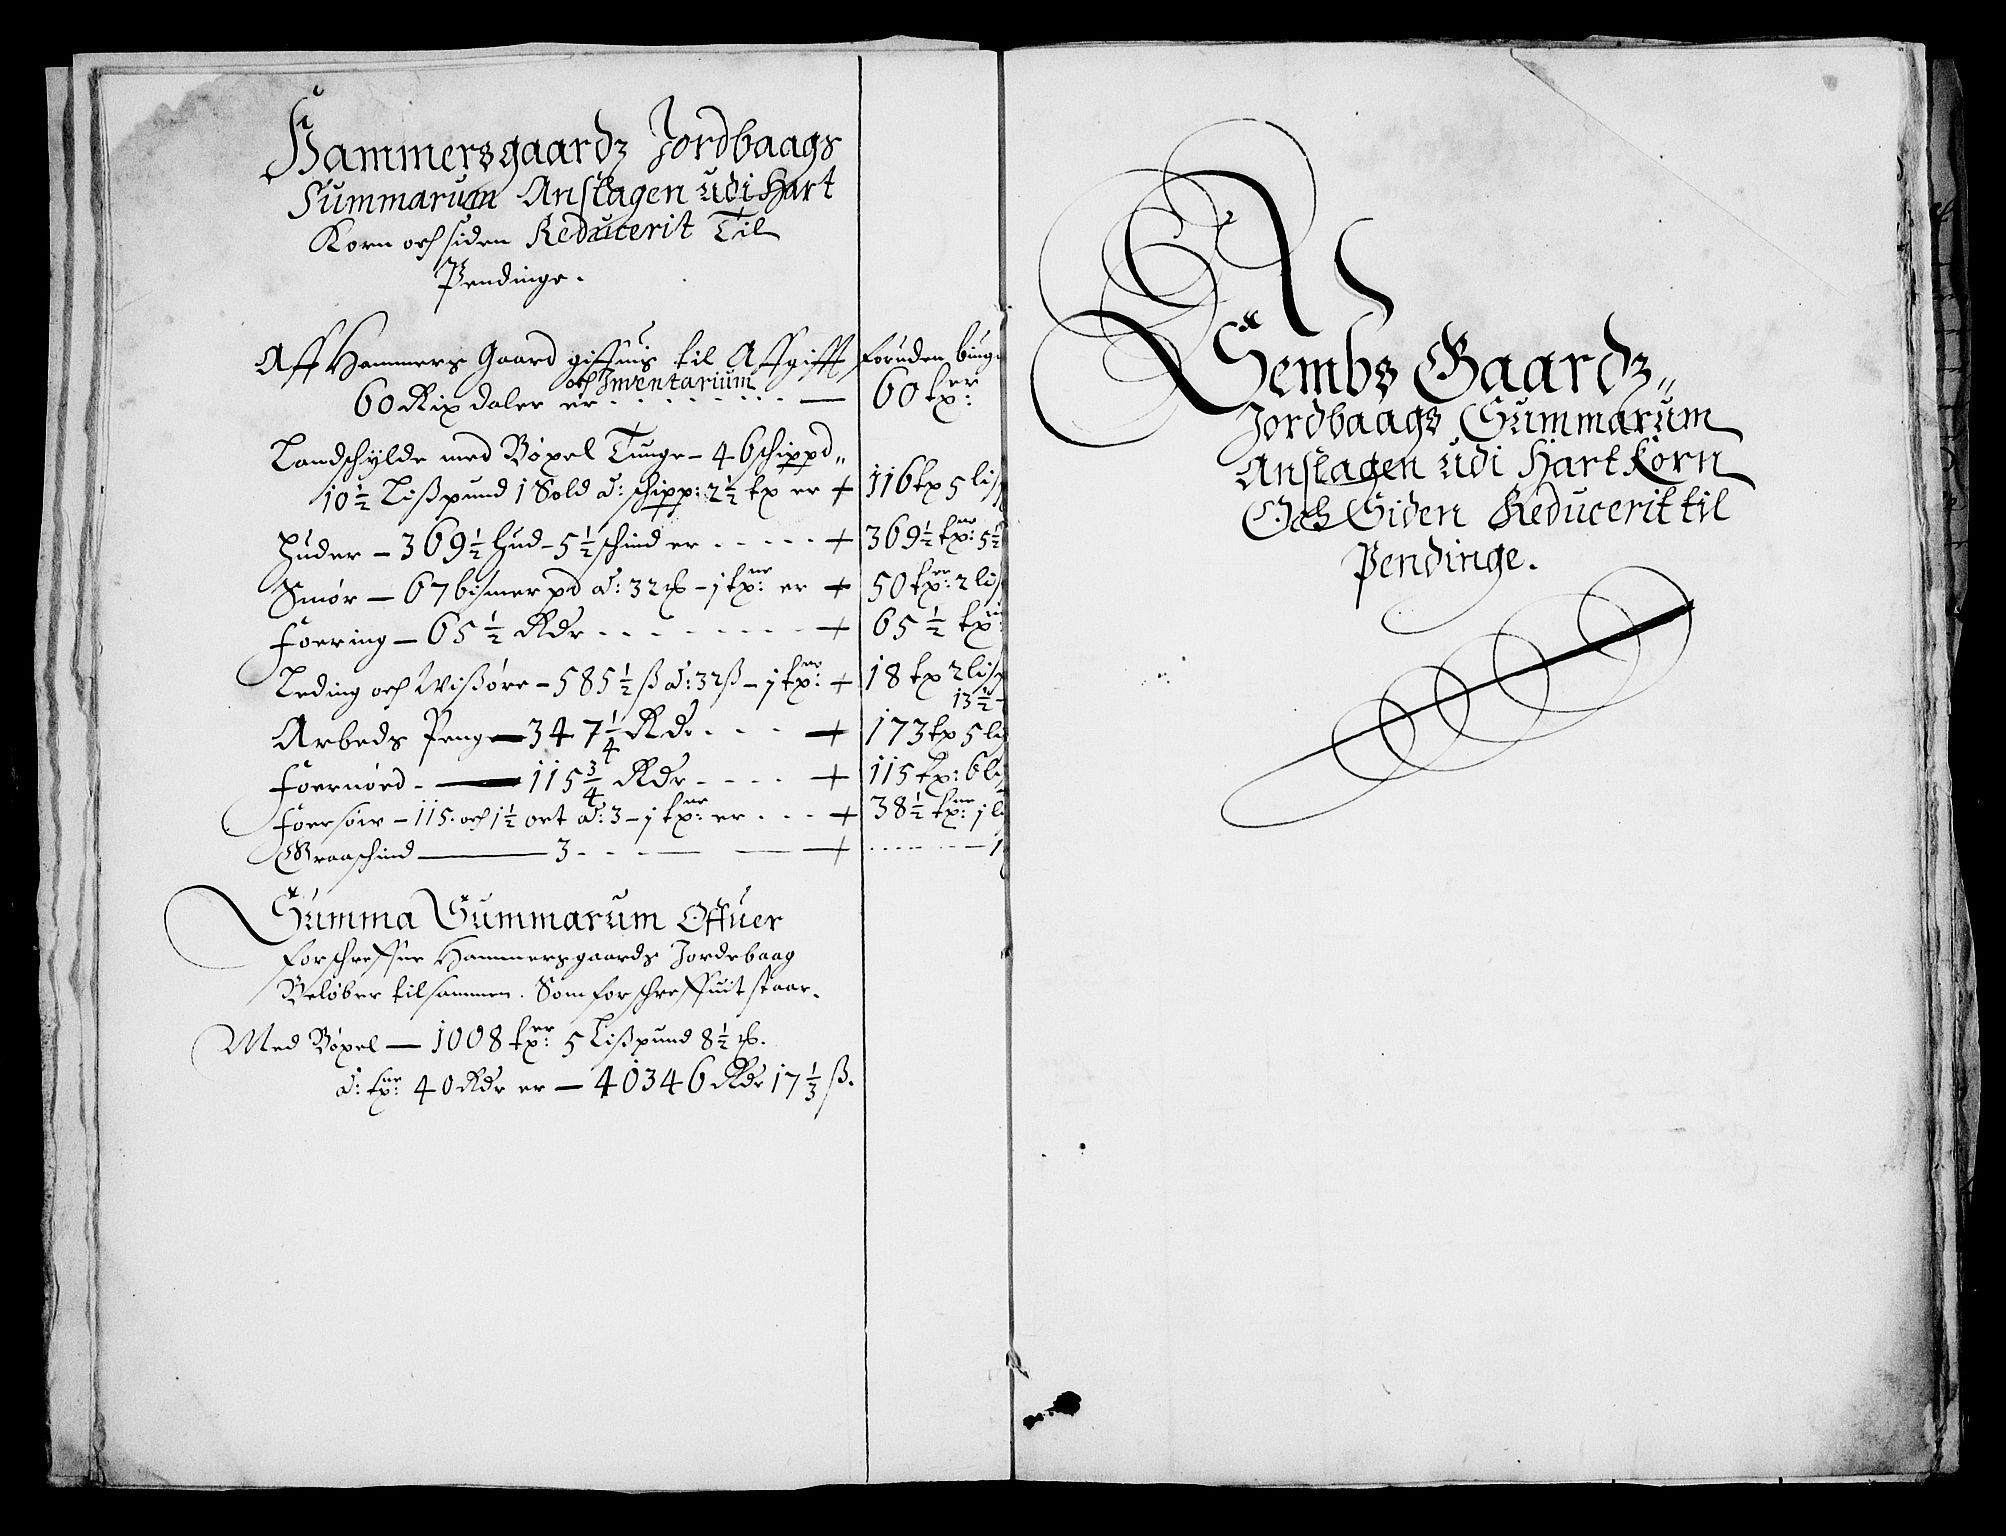 Hammersgaardz Jordbaags
Summarum Anslagen udi Hart
Korn och siden Reducerit Til
Pendinge.
Aff Hammers Gaard giffuis til Affgifft foruden biug
och Inventarium
60 Rix daler er - - - - - - - - — 60 txer:
Landschylde med Bøxel Tunge – 46 schippd„
10½ Lißpund 1 Sold á: schipp: 2½ tx er + 116 tx 5 liß
Huder – 369½ hud – 5½ schind er - - - - - + 369½ txnr: 5½
Smør – 67 bismer pd á: 32 ℔ – 1 txnr: er + 50 txer: 2 liß
Foering – 65½ Rdr - - - - - - - - + 65½ txnr:
Leding och Wißøre – 585½ ß á: 32 ß – 1 txnr: + 18 tx 2 liß
13½ -
Arbeds Penge — 347¼ Rdr - - - - + 173 tx 5 li
Foernød - — 115¾ Rdr - - - - + 115 tx: 6 li
Foersøw – 115. och 1½ ort á: 3 – 1 txnr: er - - - + 38½ txnr: 1 li
Graaschind — 3 - - - — — + - - - - - - – 1
Summa Summarum Offuer
forschreffne Hammersgaards Jordebaag
Beløber tilsammen. Som forschreffuit staar.
Med Bøxel — 1008 txer: 5 Lißpund 8½ ℔.
á: txnr: 40 Rdr er — 40346 Rdr 17⅓ ß.
Sembs Gaardz„
Jordbaags Summarum
Anslagen udi Hart Korn
Och Siden Reducerit til
Pendinge.